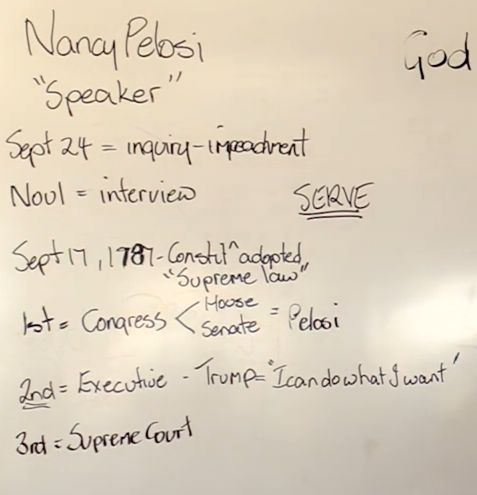 Nancy Pelosi
God
"Speaker"
Sept 24 = inquiry-impeachment
Nov 1 = interview
SERVE
Sept 17, 1787-Constit^n adopted,
"Supreme law"
1st = Congress < House
Senate = Pelosi
2nd = Executive - Trump = "I can do what I want"
3rd = Supreme Court